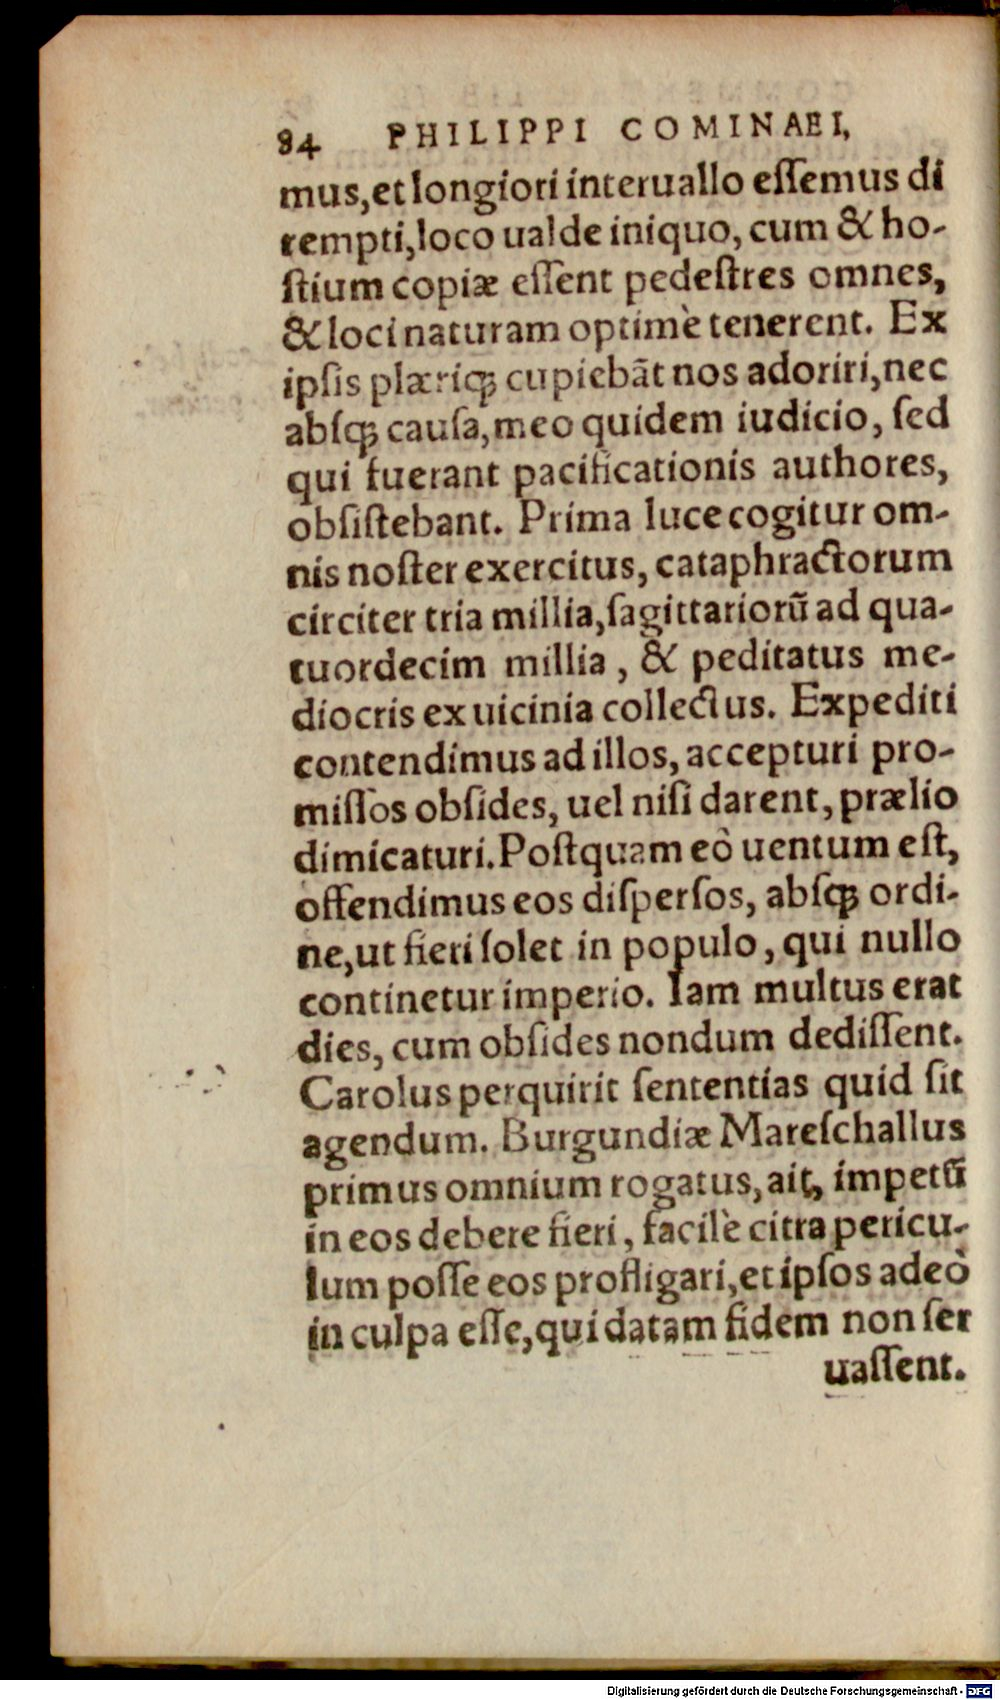 84 PHILIPPI COMINAEI,
mus,et longiori interuallo eſſemus di
rempti,loco ualde iniquo, cum & ho-
ſtium copiæ eſſent pedeſtres omnes,
& loci naturam optimè tenerent. Ex
ipſis plæriqꝫ cupiebãt nos adoriri,nec
abſqꝫ cauſa,meo quidem iudicio, ſed
qui fuerant pacificationis authores,
obſiſtebant. Prima luce cogitur om-
nis noſter exercitus, cataphractorum
circiter tria millia,ſagittariorũ ad qua-
tuordecim millia , & peditatus me-
diocris ex uicinia collectus. Expediti
contendimus ad illos, accepturi pro-
miſſos obſides, uel niſi darent, prælio
dimicaturi. Poſtquam eò uentum eſt,
offendimus eos diſperſos, abſqꝫ ordi-
ne,ut fieri ſolet in populo, qui nullo
continetur imperio. Iam multus erat
dies, cum obſides nondum dediſſent.
Carolus perquirit ſententias quid ſit
agendum. Burgundiæ Mareſchallus
primus omnium rogatus, ait, impetũ
in eos debere fieri, facilè citra pericu-
lum poſſe eos profligari,et ipſos adeò
in culpa eſſe,qui datam fidem non ſer
uaſſent.
Digitalisierung gefördert durch die Deutsche Forschungsgemeinschaft - DFG